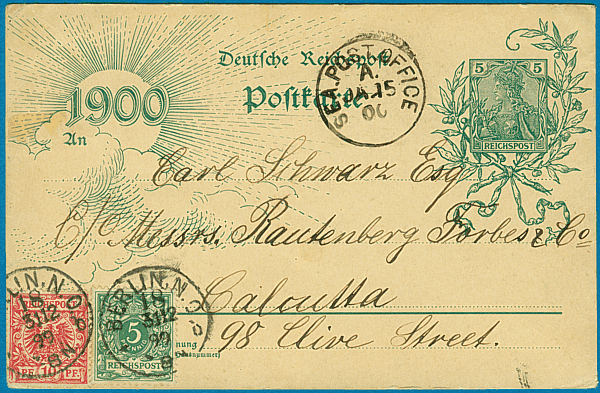 Deutsche Reichspost
Postkarte
1900
An
SEA POST OFFICE
A.
JA.15
00
5 5
REICHSPOST
Carl Schwarz Esq
C/o Messrs. Rautenberg Forbes & Co
Calcutta
98 Clive Street.
BERLIN.N.O
31.12
99
REICHSPOST
PF. 10 PF.
BERLIN.N.O
31.12
99
5
PFENNIG
REICHSPOST